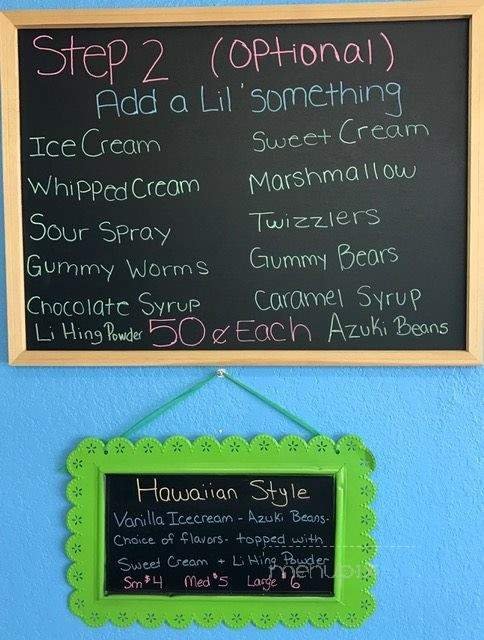 Step 2 (Optional)
Add a Lil' something
Ice Cream Sweet Cream
Whipped Cream Marshmallow
Sour Spray Twizzlers
Gummy Worms Gummy Bears
Chocolate Syrup Caramel Syrup
Li Hing Powder 50¢ Each Azuki Beans
Hawaiian Style
Vanilla Icecream - Azuki Beans-
Choice of flavors- topped with
Sweet Cream + Li Hing Powder
Sm $4 Med $5 Large $6
menupix